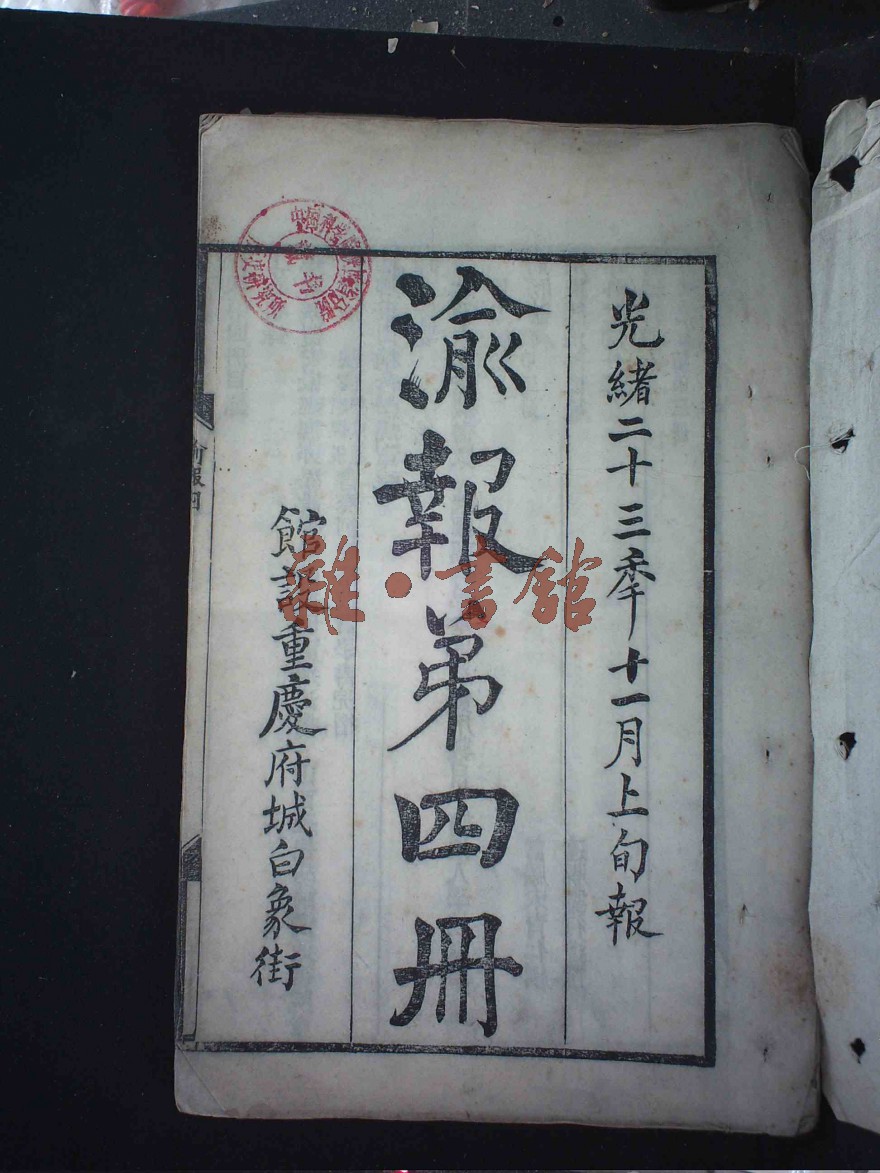 光緒二十三秊十一月上旬報
渝報弟四冊
館設重慶府城白象街
雜·書館